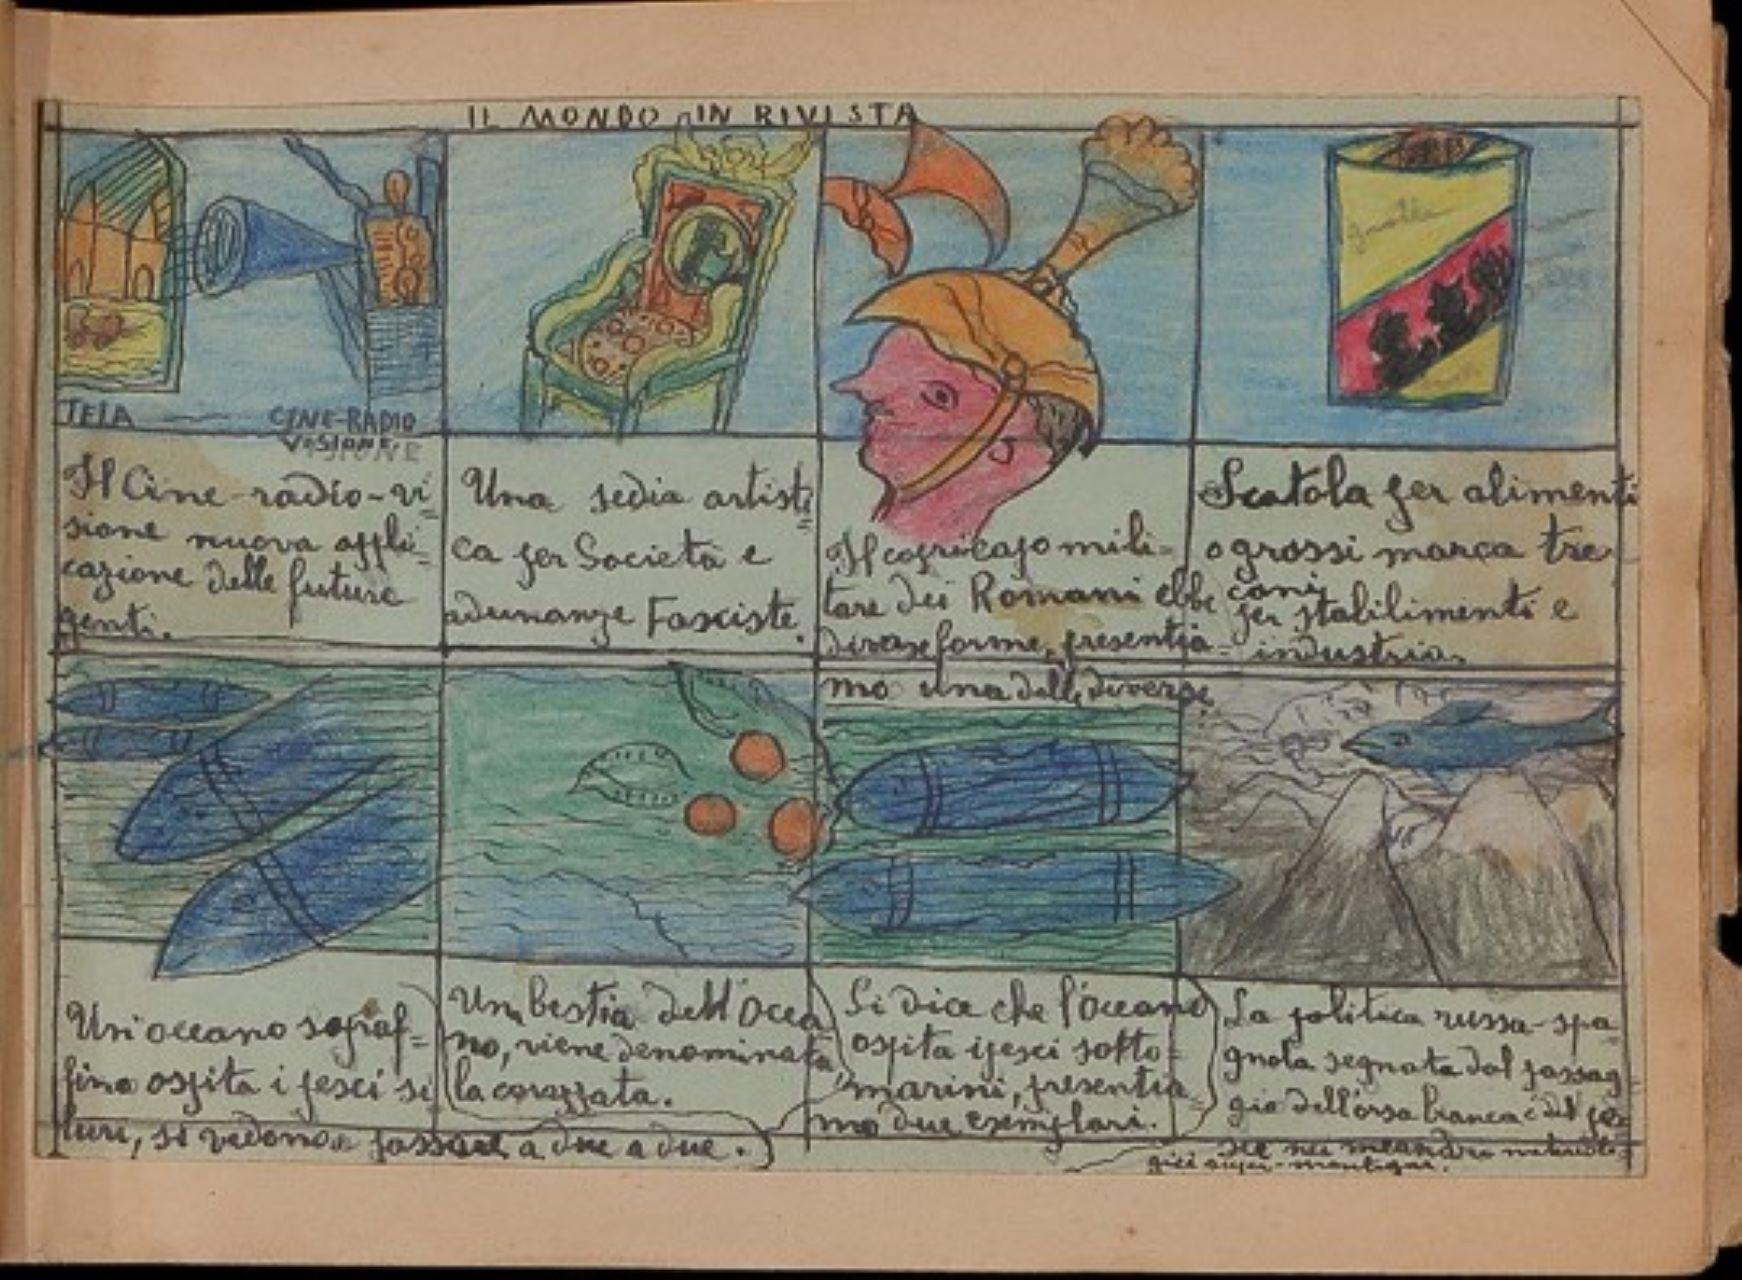 IL MONDO IN RIVISTA
TELA
CINE-RADIO
VISIONE
Il Cine-radio-vi=
sione nuova appli=
cazione delle future
genti.
Una sedia artisti=
ca per Società e
adunanze Fasciste.
Il copricapo mili=
tare dei Romani ebbe
diverse forme, presentia=
mo una delle diverse.
Scatola per alimenti
o grossi marca tre
cani
per stabilimenti e
industria.
Un oceano sopraf=
fino ospita i pesci si
luri, si vedono passare a due a due.
Una bestia dell'Ocea
no, viene denominata
la corazzata.
Si dice che l'oceano
ospita i pesci sotto=
marini, presentia=
mo due esemplari.
La politica russa-spa
gnola segnata dal passag=
gio dell'orsa bianca e del pe=
sce nei meandri